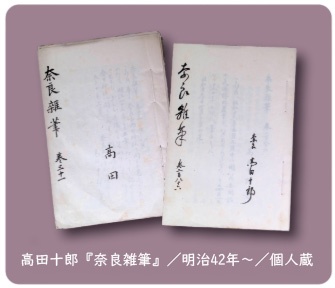 奈良雜筆
卷三十一
高田
奈良雜筆
高田十郎
高田十郎『奈良雑筆』／明治42年〜／個人蔵